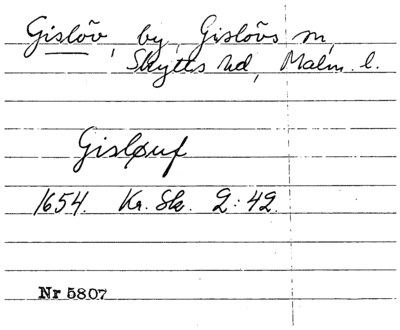 Gislöv, by, Gislövs sn,
Skytts hd, Malm. l.
Gisløuf
1654. Kr. Sk. 2:42.
Nr 5807